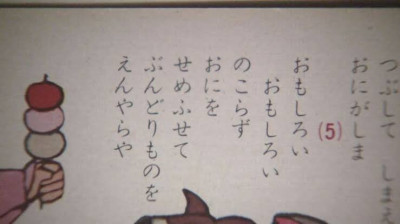 つぶして しまえ
おにがしま
(5)
おもしろい
おもしろい
のこらず
おにを
せめふせて
ぶんどりものを
えんやらや